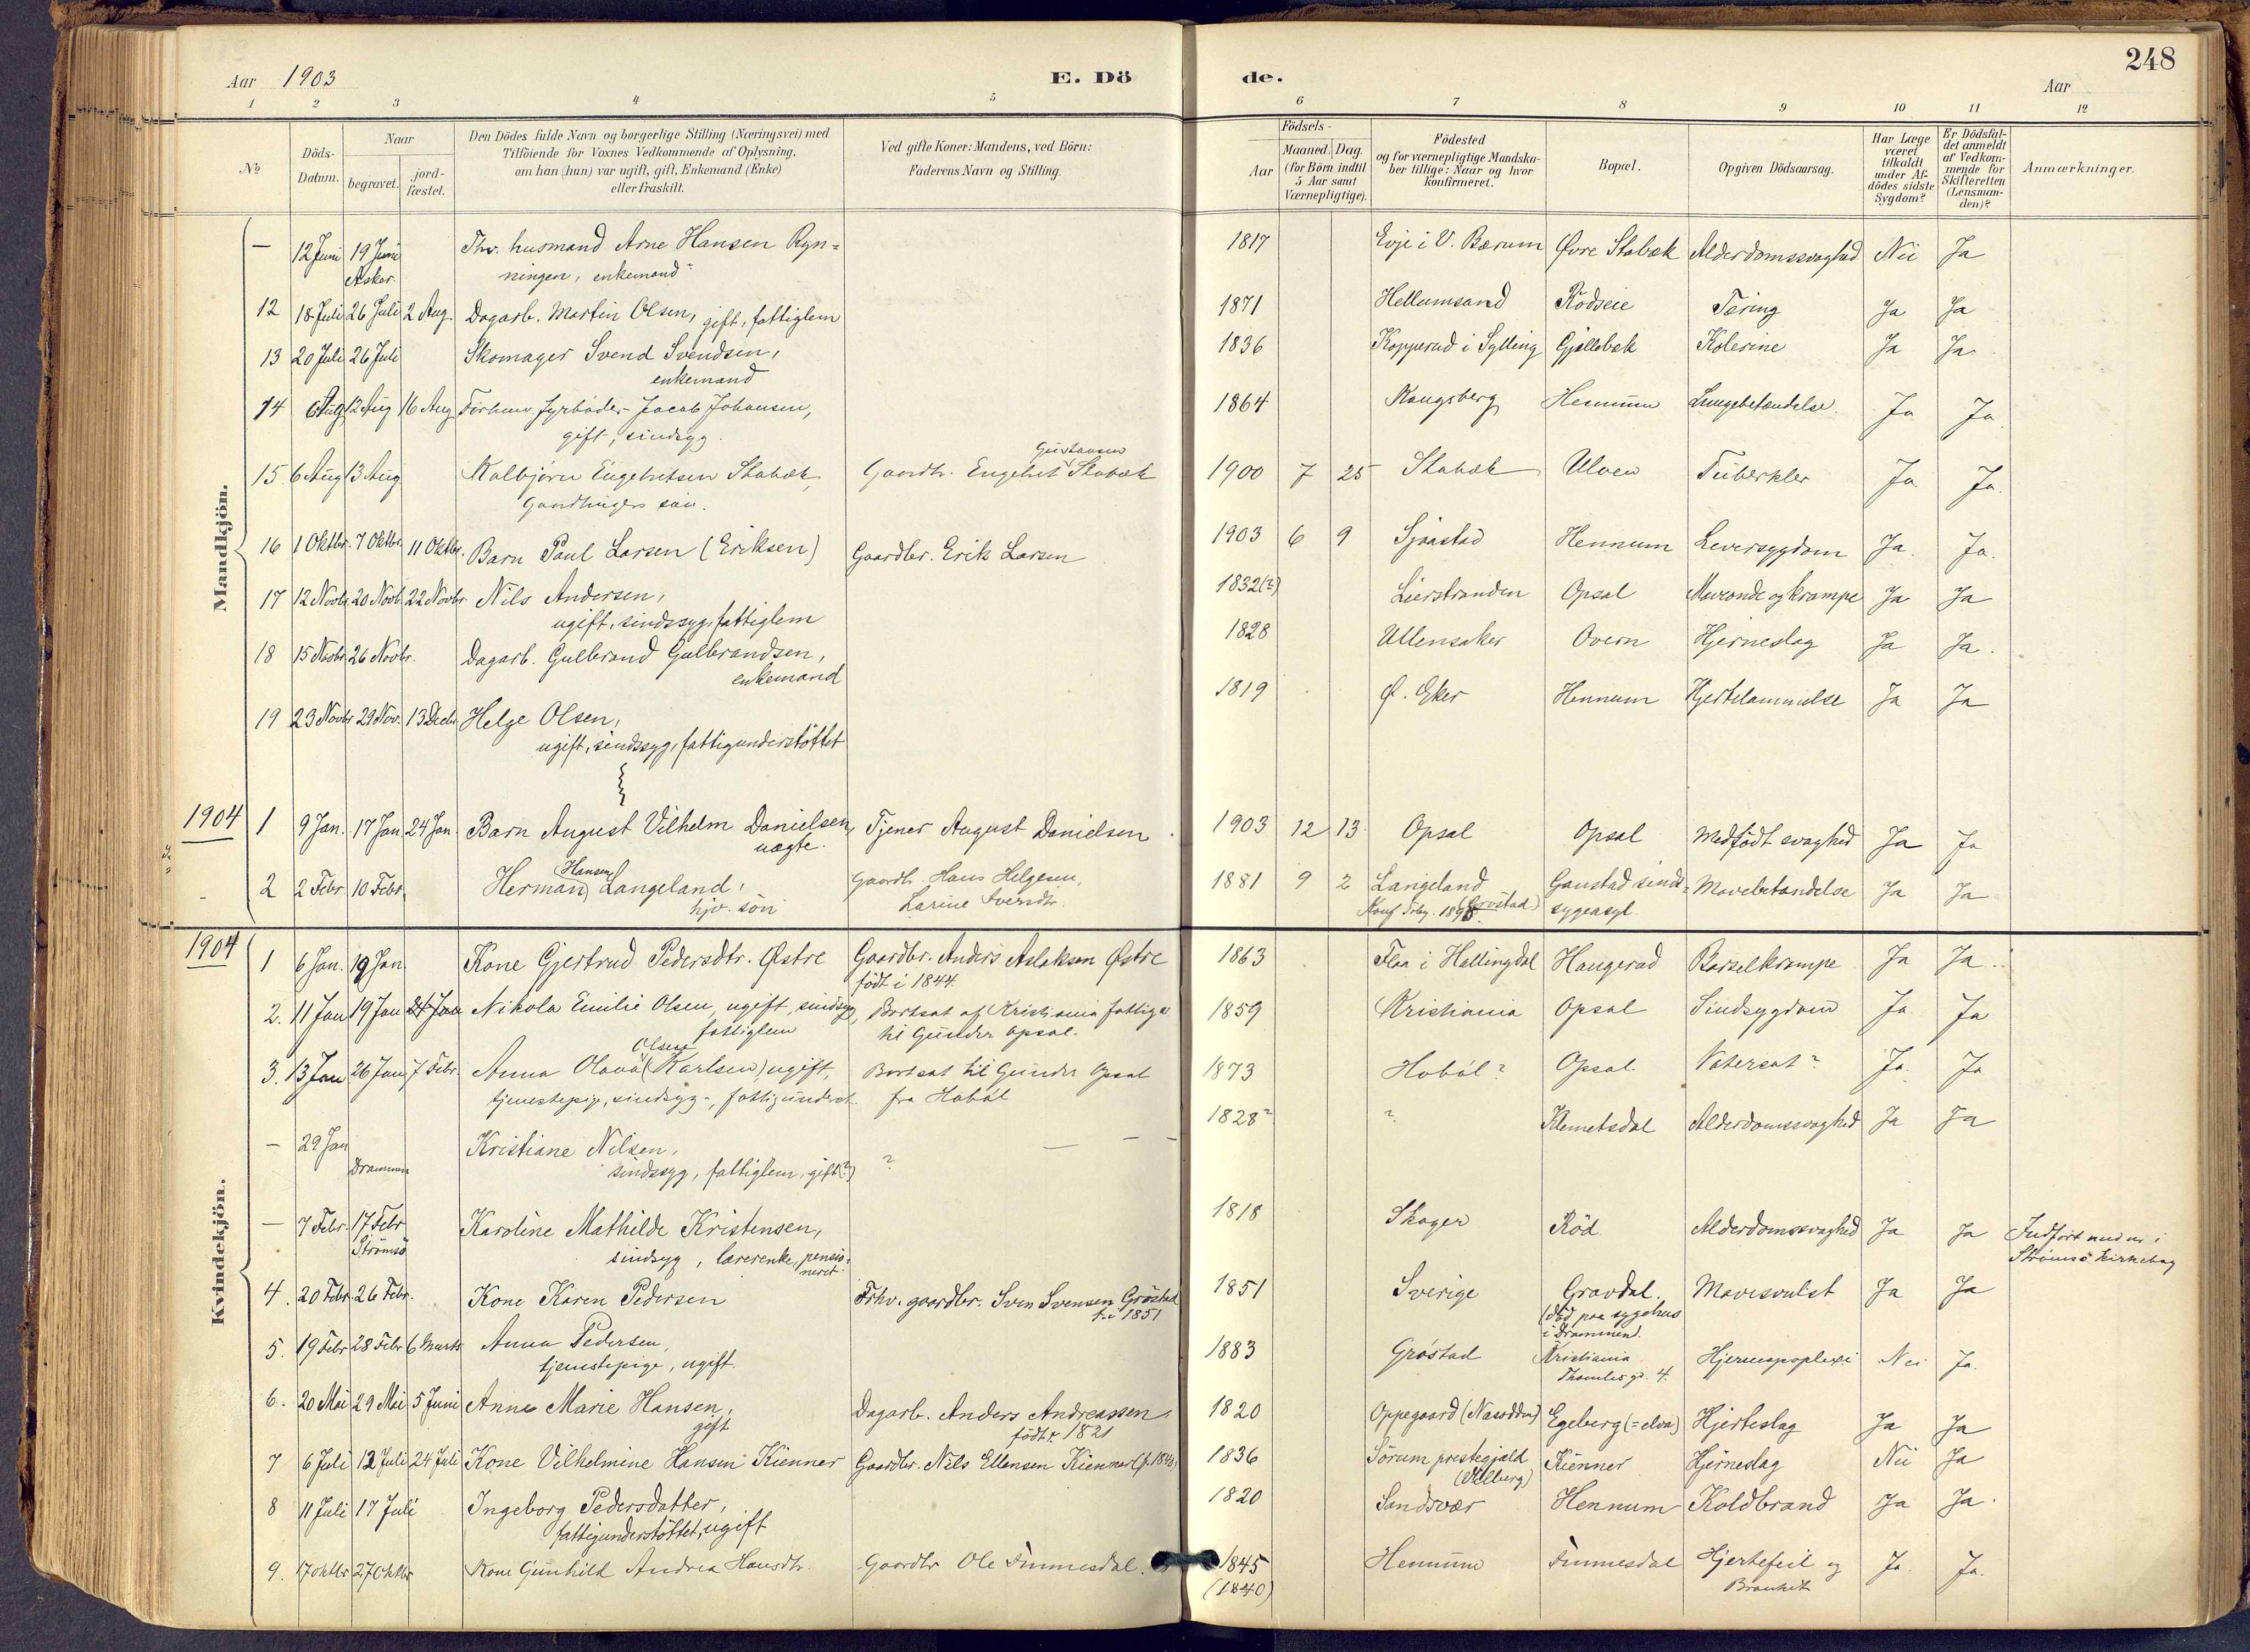 248
Aar 1903
E. Dö
de.
Aar
1 2 3 4 5 6 7 8 9 10 11 12
No
Döds-Datum.
Naar
begravet.
jord-fæstet.
Den Dödes fulde Navn og borgerlige Stilling (Næringsvei) med
Tilföiende for Voxnes Vedkommende af Oplysning,
om han (hun) var ugift, gift, Enkemand (Enke)
eller fraskilt.
Ved gifte Koner: Mandens, ved Börn:
Faderens Navn og Stilling.
Födsels-
Aar
Maaned. Dag.
(for Börn indtil
5 Aar samt
Værnepligtige).
Födested
og for værnepligtige Mandska-
ber tillige: Naar og hvor
konfirmeret.
Bopæl.
Opgiven Dödsaarsag.
Har Læge
været
tilkaldt
under Af-
dödes sidste
Sygdom?
Er Dödsfal-
det anmeldt
af Vedkom-
mende for
Skifteretten
(Lensman-
den)?
Anmærkninger.
Mandkjön.
— 12 Juni 19 Juni Fhv. husmand Arne Hansen Ryn= 1817 Evje i V. Bærum Øvre Stabæk Alderdomssvaghed Nei Ja
Asker. ningen, enkemand
12 18 Juli 26 Juli 2 Aug. Dagarb. Martin Olsen, gift, fattiglem 1871 Hellumsand Rödseie Tæring Ja Ja
13 20 Juli 26 Juli Skomager Svend Svendsen, 1836 Kopperud i Sylling Gjellebæk Kolerine Ja Ja
enkemand
14 6 Aug 12 Aug 16 Aug Forhenv. fyrböder Jacob Johansen, 1864 Kongsberg Hennum Lungebetændelse. Ja Ja.
gift, sindsyg.
Gustavsen
15. 6 Aug 13 Aug Kolbjörn Engebretsen Stabæk, Gaardbr. Engebret Stabæk 1900 7 25 Stabæk Ulven Tuberkler Ja Ja.
Gaardbrugers sön.
16 1 Oktbr. 7 Oktbr. 11 Oktbr. Barn Paul Larsen (Eriksen) Gaardbr. Erik Larsen 1903 6 9 Sjaastad Hennum Leversygdom Ja. Ja.
17 12 Novbr. 20 Novb. 22 Novbr. Nils Andersen, 1832(?) Lierstranden Opsal Maveonde og krampe Ja Ja
ugift, sindssyg, fattiglem
18 15 Novbr. 26 Novbr. Dagarb. Gulbrand Gulbrandsen, 1828 Ullensaker Overn Hjerneslag Ja Ja.
enkemand
19 23 Novbr. 29 Nov. 13 Decbr. Helge Olsen, 1819 Ø. Eker Hennum Hjertelammelse Ja Ja
ugift, sindssyg, fattigunderstöttet
1904 1 9 Jan. 17 Jan. 24 Jan. Barn August Vilhelm Danielsen, Tjener August Danielsen 1903 12 13 Opsal Opsal Medfödt svaghed Ja Ja
uægte.
Hansen
2 2 Febr. 10 Febr. Herman Langeland, Gaardb. Hans Helgesen, 1881 9 2 Langeland Gaustad sinds= Mavebetændelse Ja Ja
hjv. sön Larine Iversdtr. (Gröstad)
Konf. 1898. sygeasyl
Kvindekjön.
1904 1 6 Jan. 19 Jan. Kone Gjertrud Pedersdtr. Østre Gaardbr. Anders Aslaksen Østre 1863 Flaa i Hallingdal Haugerud Barselkrampe Ja Ja.
födt i 1844.
2. 11 Jan 19 Jan 24 Jan Nikola Emilie Olsen, ugift, sindsyg, Bortsat af Kristiania fattigv 1859 Kristiania Opsal Sindsygdom Ja Ja
fattiglem til Gunder Opsal.
Olsen
3. 13 Jan 26 Jan 7 Febr. Anna Olava (Karlsen) ugift, Bortsat til Gunder Opsal 1873 Haböl? Opsal. Vatersot? Ja. Ja
tjenestepige, sindsyg, fattigunderst. fra Haböl
— 29 Jan Kristiane Nilsen, 1828? ? Klemetsdal Alderdomssvaghed Ja Ja
Drammen sindssyg, fattiglem, gift(?) ?
— 7 Febr. 17 Febr Karoline Mathilde Kristensen, 1818 Skoger Röd Alderdomssvaghed Ja Ja Indfört under i
Strömsö sindsyg, lærerenke, pensio-neret. Strömsö kirkebog
4. 20 Febr. 26 Febr. Kone Karen Pedersen Frhv. gaardbr. Sven Svensen Gröstad 1851 Sverige Gravdal. Mavesvulst Ja Ja
f. i 1851 (död paa sygehus
i Drammen).
5. 19 Febr 28 Febr 6 Marts Anna Pedersen, 1883 Gröstad Kristiania Hjerneapoplexi Nei Ja.
tjenestepige, ugift. Thomles gd. 4.
6. 20 Mai 29 Mai 5 Juni Anne Marie Hansen, Dagarb. Anders Andreassen, 1820 Oppegaard (Nasodden) Egeberg (=elva) Hjerteslag Ja Ja
gift födt 1821
7 6 Juli 12 Juli 24 Juli Kone Vilhelmine Hansen Kienner Gaardbr. Nils Ellensen Kienner 1836 Sörum prestegjæld Kienner Hjerneslag Nei Ja
8 11 Juli 17 Juli Ingeborg Pedersdatter, 1820 Sandsvær Hennum Koldbrand Ja Ja.
fattigunderstöttet, ugift
9. 17 oktbr 27 Oktbr Kone Gunhild Andrea Hansdtr. Gaardbr Ole Finnesdal. 1845 Hennum Finnesdal Hjertefeil og Ja. Ja.
(1840) Bronkit